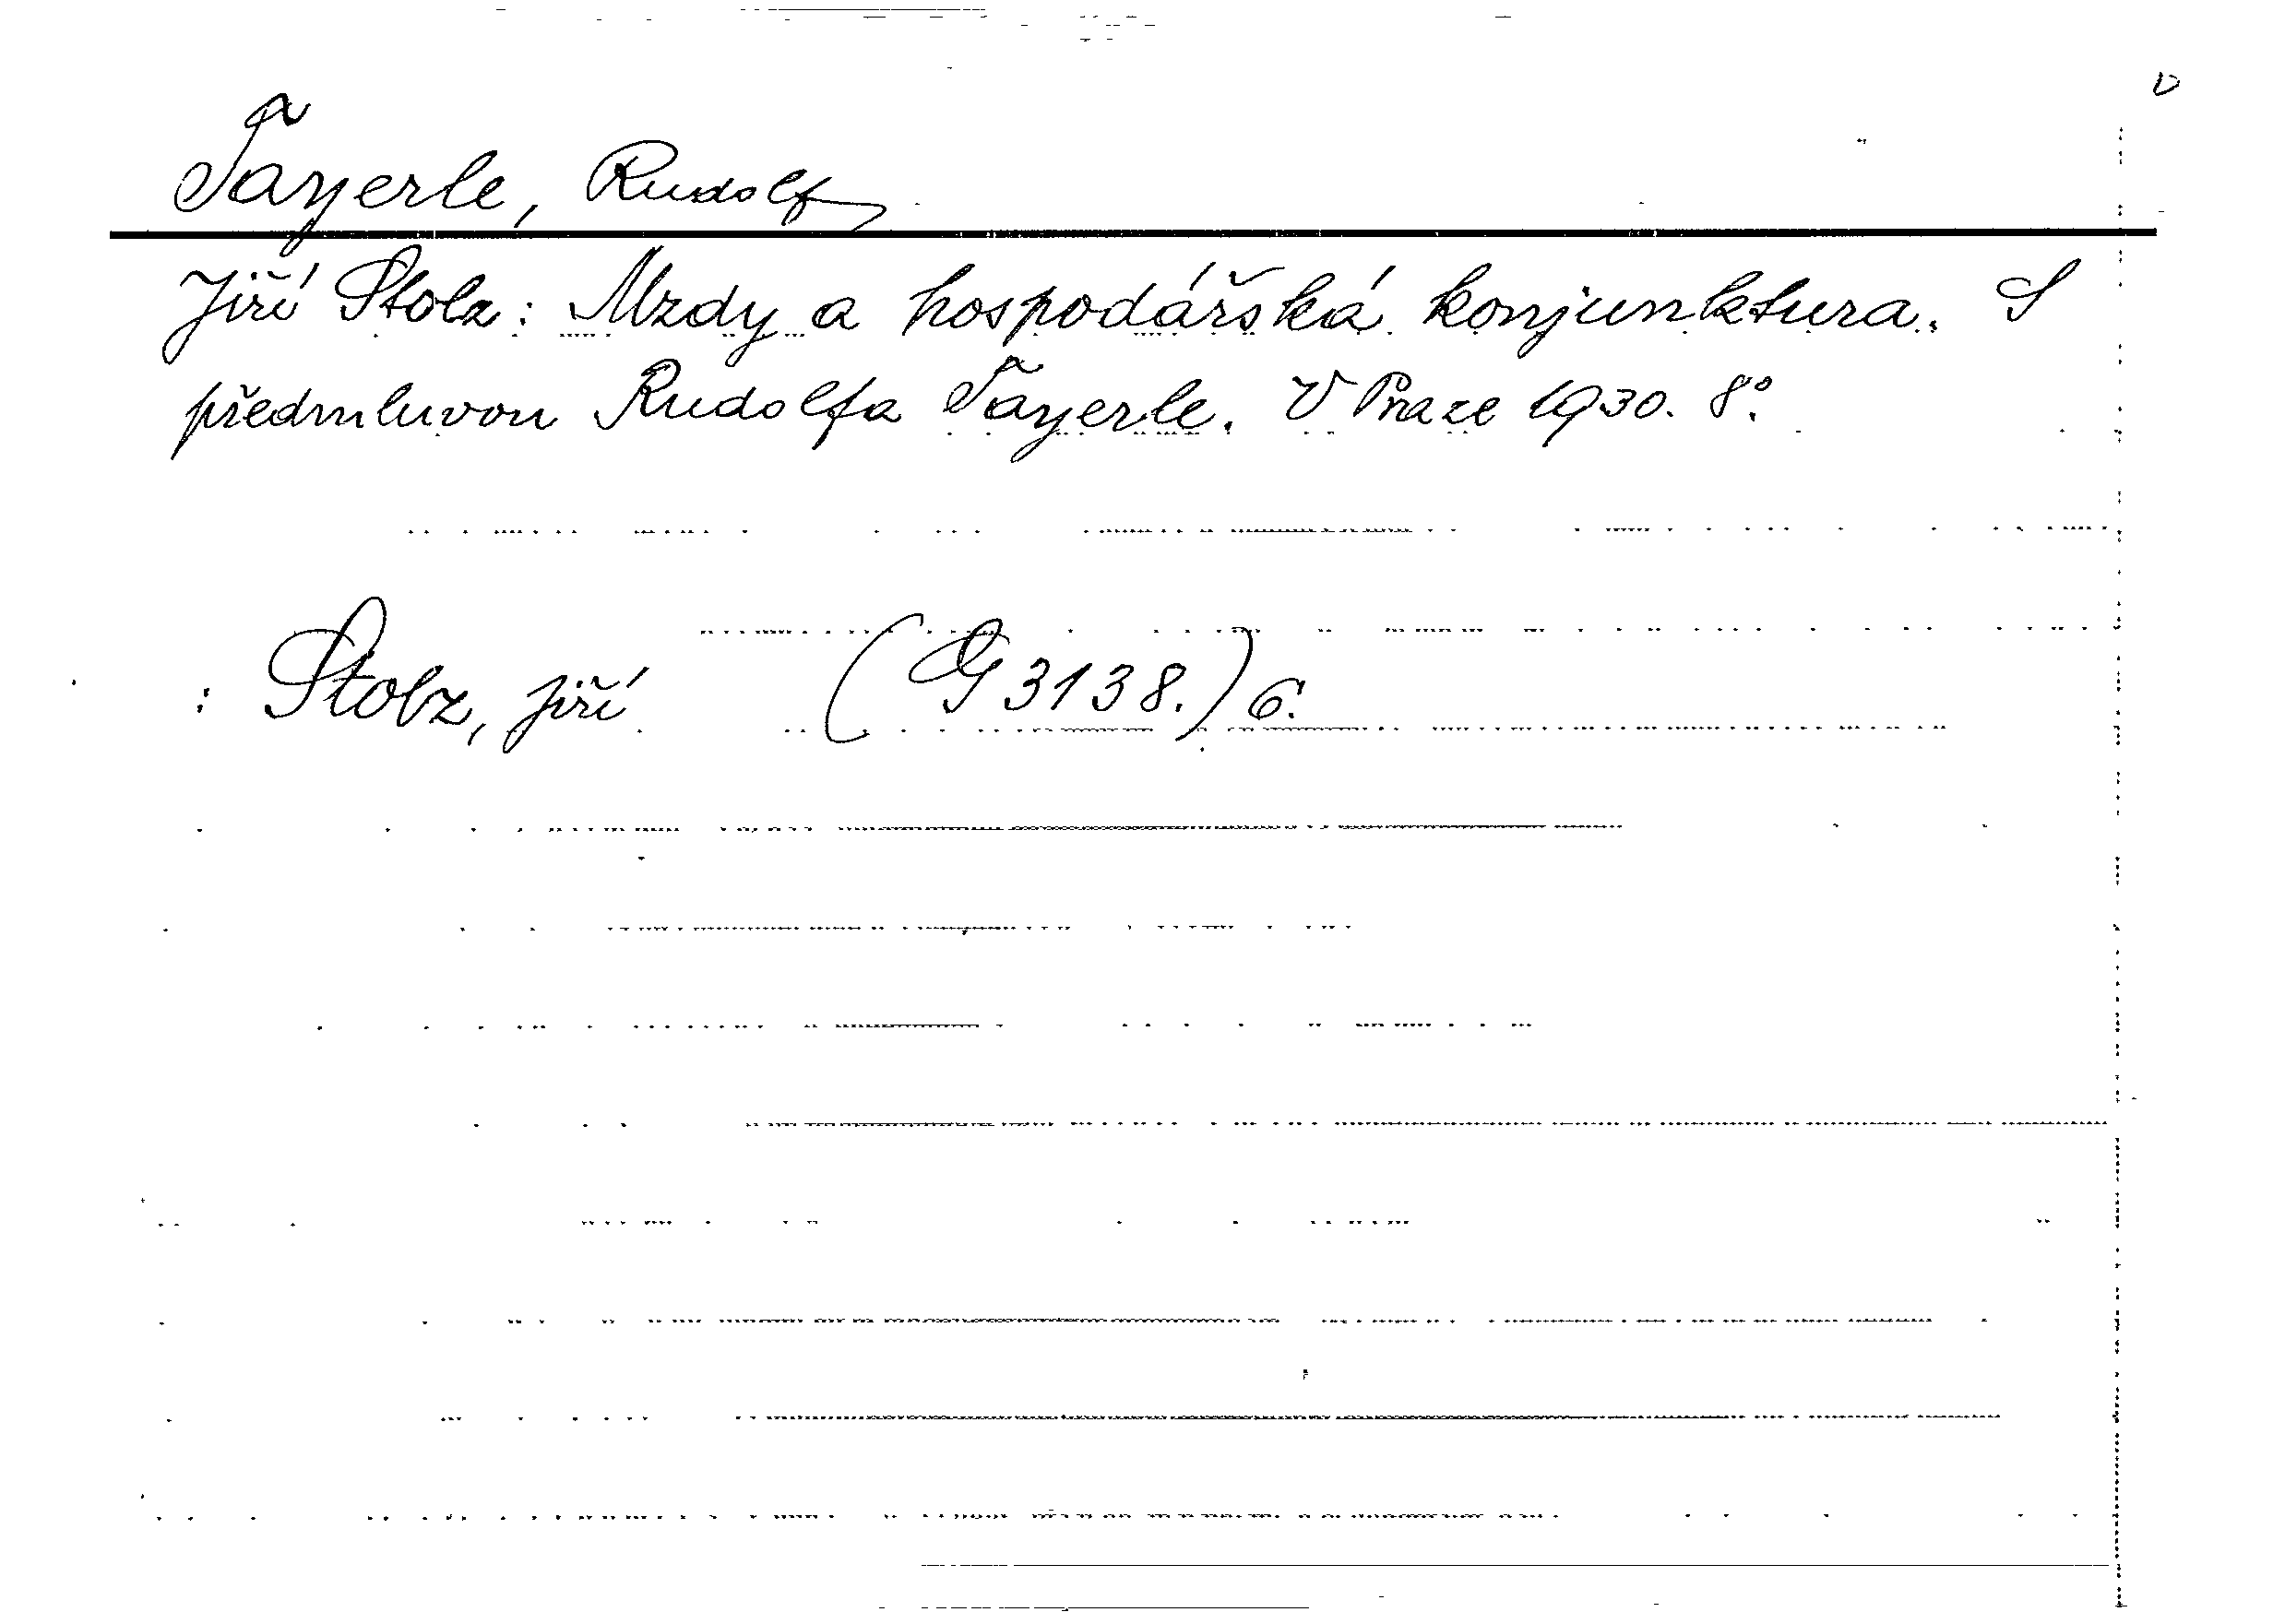 Tayerle, Rudolf
Jiří Stolz: Mzdy a hospodářská konjunktura. S
předmluvou Rudolfa Tayerle. V Praze 1930. 8°.
: Stolz, Jiří (G 3138.) 6.